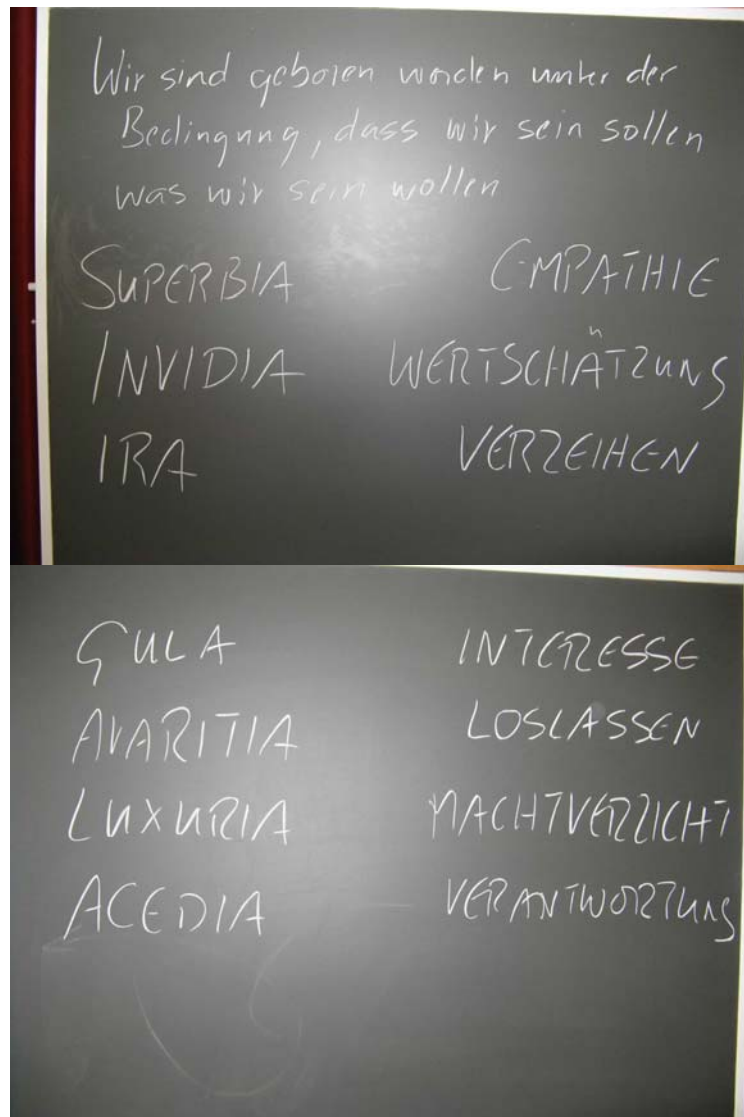 Wir sind geboren worden unter der
Bedingung, dass wir sein sollen
was wir sein wollen
SUPERBIA EMPATHIE
INVIDIA WERTSCHÄTZUNG
IRA VERZEIHEN
GULA INTERESSE
AVARITIA LOSLASSEN
LUXURIA MACHTVERZICHT
ACEDIA VERANTWORTUNG